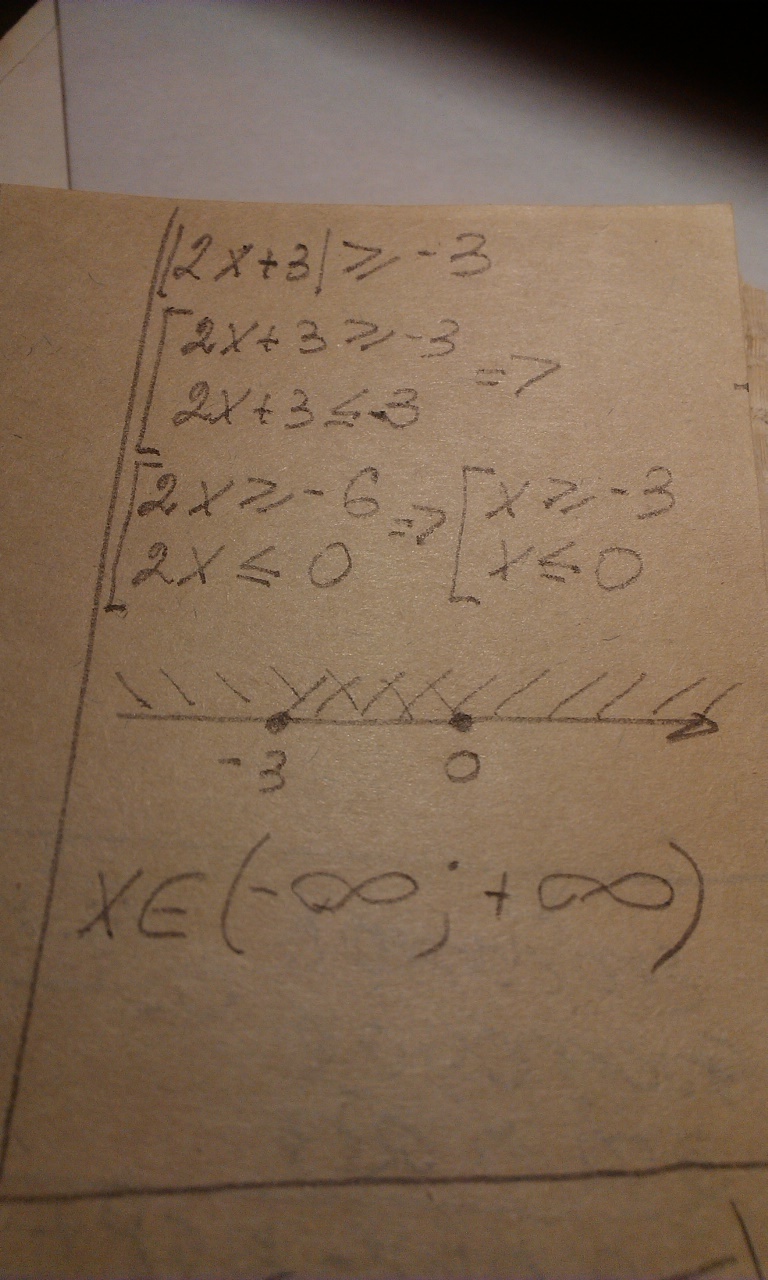 |2x+3| ≥ -3
[2x+3 ≥ -3
2x+3 ≤ 3 =>
[2x ≥ -6 => [x ≥ -3
2x ≤ 0 x ≤ 0
-3 0
x∈(-∞; +∞)